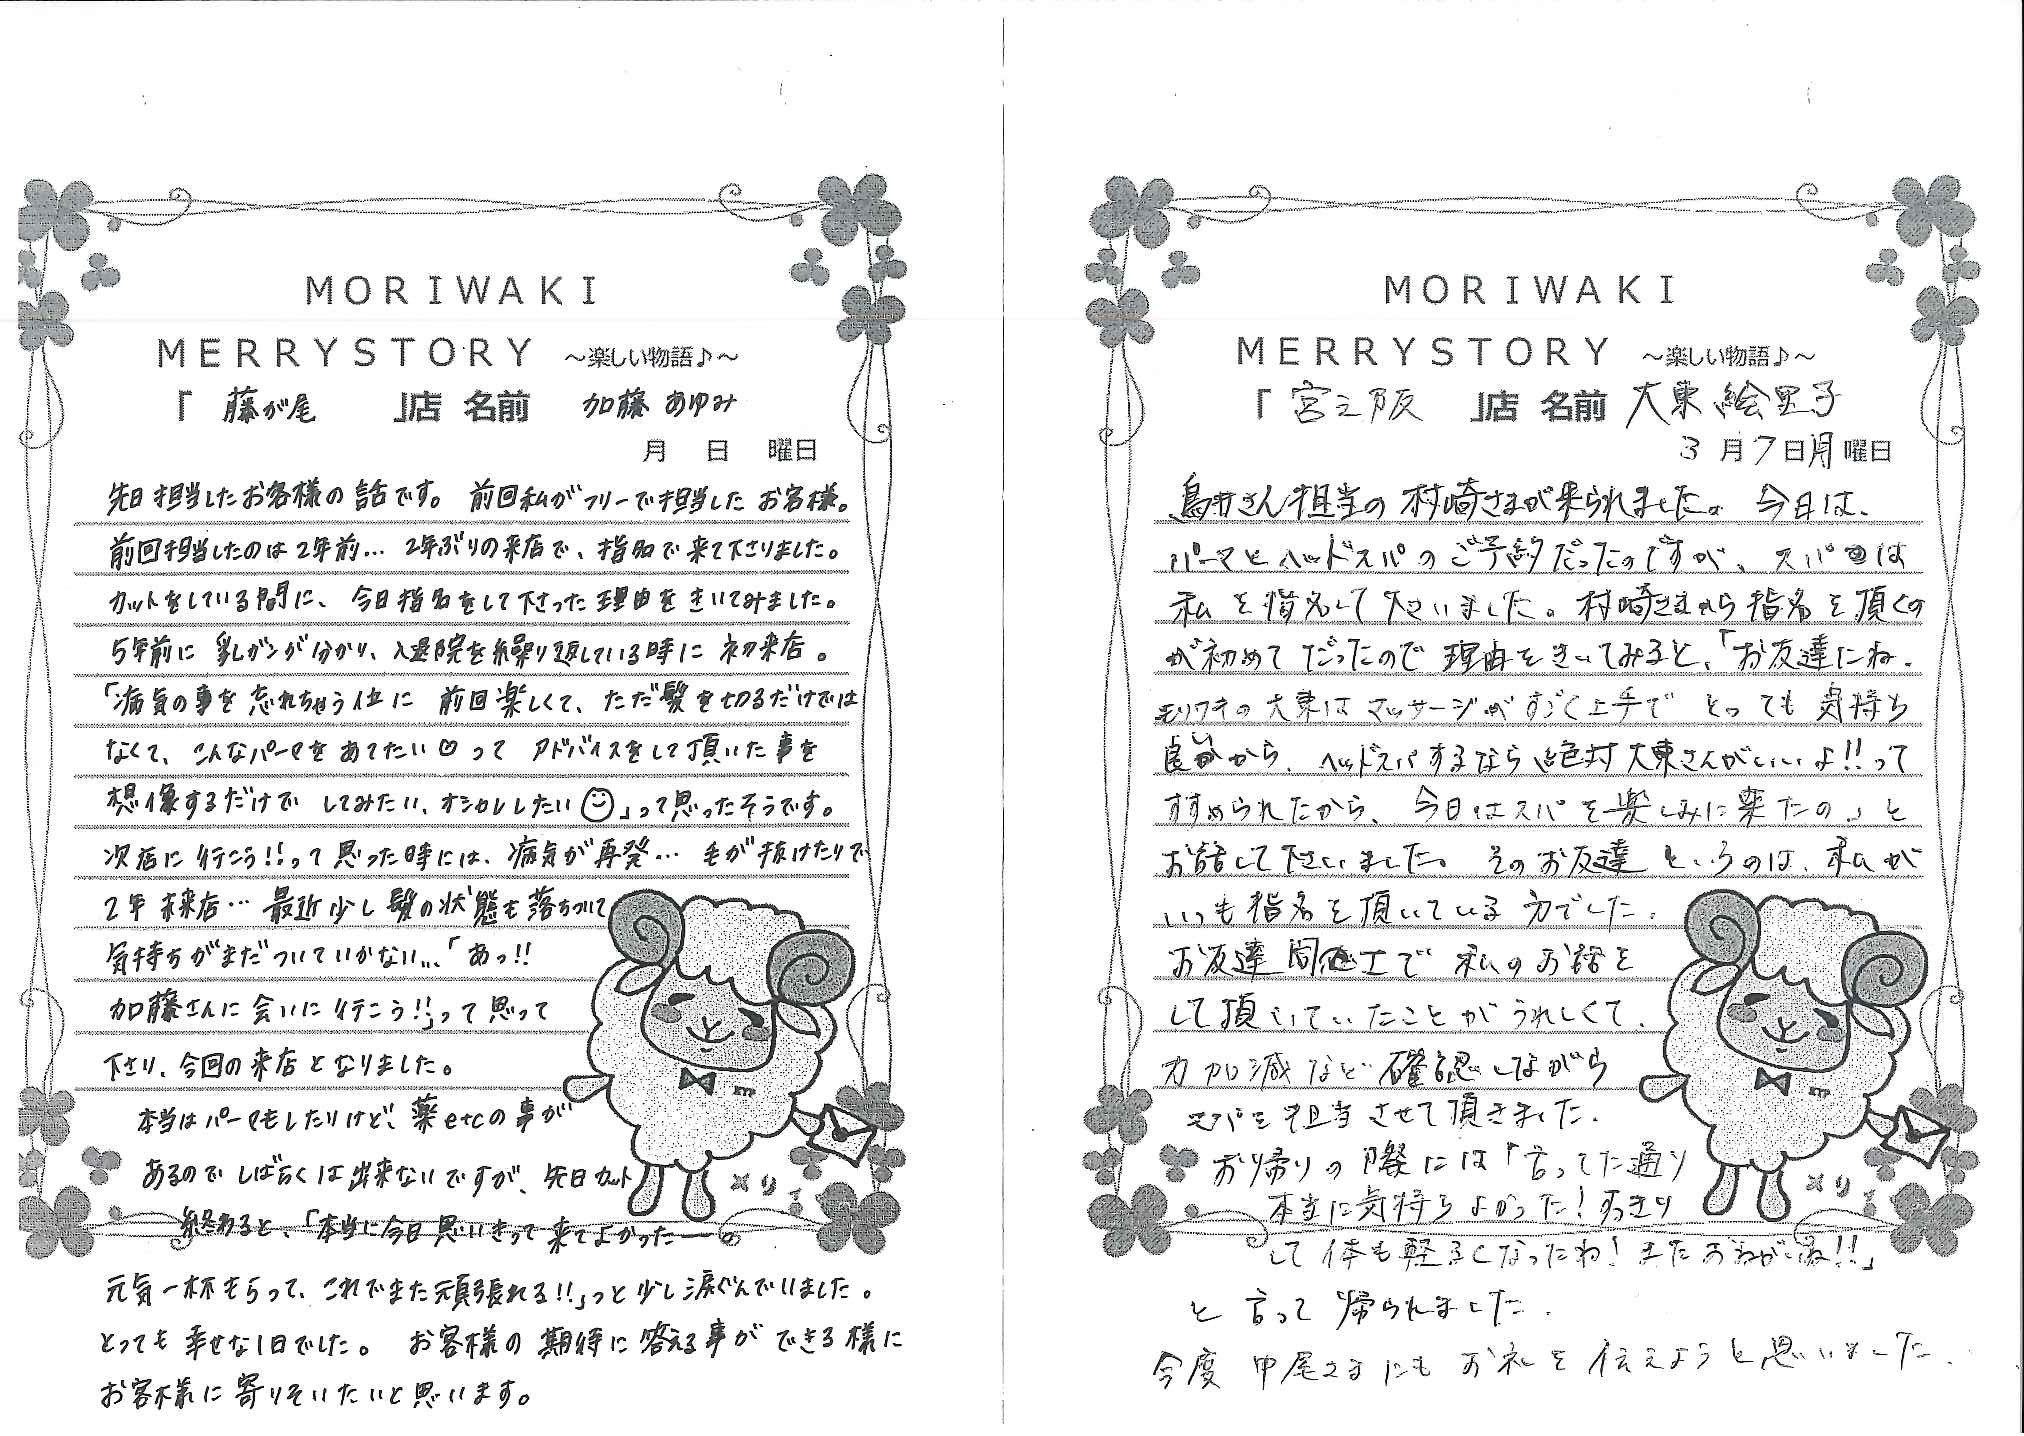 MORIWAKI
MERRYSTORY ～楽しい物語♪～
「 藤が尾 」店 名前 加藤 あゆみ
月 日 曜日
先日担当したお客様の話です。 前回私がフリーで担当したお客様。
前回担当したのは2年前… 2年ぶりの来店で、指名で来て下さりました。
カットをしている間に、今日指名をして下さった理由をきいてみました。
5年前に乳ガンが分かり、入退院を繰り返している時に初来店。
「病気の事を忘れちゃう位に 前回楽しくて、ただ髪を切るだけでは
なくて、こんなパーマをあてたい♡って アドバイスをして頂いた事を
想像するだけで してみたい、オシャレしたい☺」って思ったそうです。
次店に行こう!!って思った時には、病気が再発… 毛が抜けたりで
2年未来店… 最近少し髪の状態も落ちついて
気持ちがまだついていかない…、「あっ!!
加藤さんに会いに行こう!!」って思って
下さり、今回の来店となりました。
本当はパーマもしたりけど、薬etcの事が
あるのでしばらくは出来ないですが、先日カット
終わると、「本当に今日思いきって来てよかったー。
元気一杯もらって、これでまた頑張れる!!」っと少し涙ぐんでいました。
とっても幸せな1日でした。 お客様の期待に答える事ができる様に
お客様に寄りそいたいと思います。
メリィ
MORIWAKI
MERRYSTORY ～楽しい物語♪～
「 宮之阪 」店 名前 大東 絵里子
3月7日月曜日
鳥井さん担当の村崎さまが来られました。今日は、
パーマとヘッドスパのご予約だったのですが、スパは
私を指名して下さいました。村崎さまから指名を頂くの
が初めてだったので理由をきいてみると、「お友達にね、
モリワキの大東はマッサージがすごく上手でとっても気持ち
良いから、ヘッドスパするなら絶対大東さんがいいよ!!って
すすめられたから、今日はスパを楽しみに来たの。」と
お話して下さいました。そのお友達というのは、私が
いつも指名を頂いている方でした。
お友達同士で私のお話を
して頂いていたことがうれしくて、
力加減など確認しながら
スパを担当させて頂きました。
お帰りの際には「言ってた通り
本当に気持ちよかった！すっきり
して体も軽るくなったね！またおねがいね!!」
と言って帰られました。
今度 中尾さまにもお礼を伝えようと思いました。
メリィ